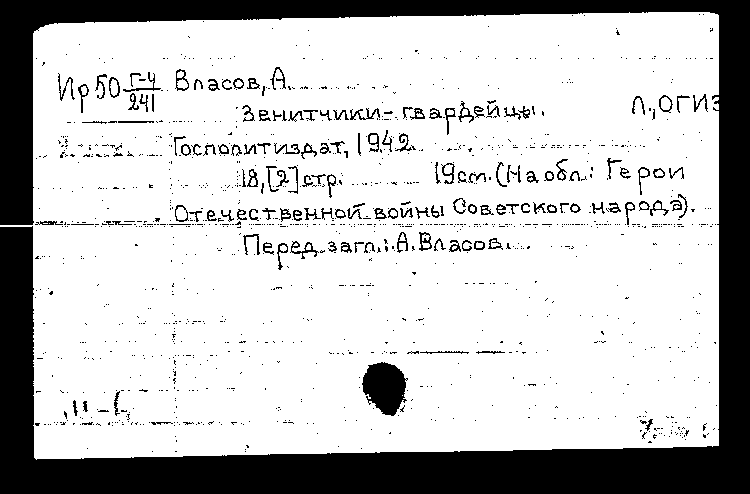 Ир50 Г-4/241 Власов, А.
Зенитчики-гвардейцы. Л., ОГИЗ
Госполитиздат, 1942
18,[2] стр. 19 см. (На обл.: Герои
Отечественной войны Советского народа).
Перед загл.: А. Власов.